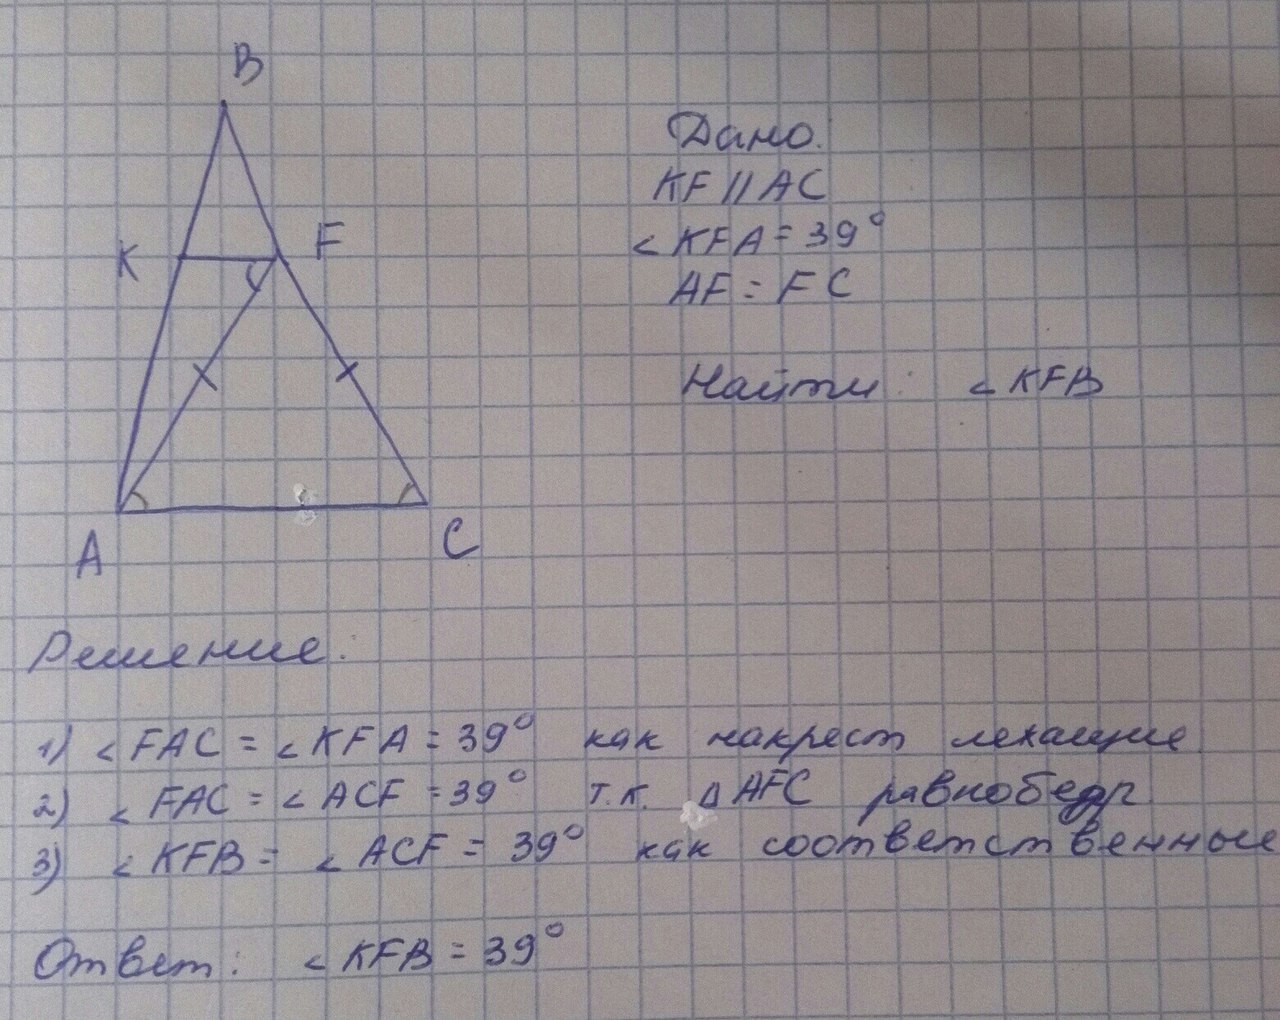 B
K
F
A
C
Дано.
KF || AC
∠KFA = 39°
AF = FC
Найти: ∠KFB
Решение:
1) ∠FAC = ∠KFA = 39° как накрест лежащие
2) ∠FAC = ∠ACF = 39° т.к. △AFC равнобедр
3) ∠KFB = ∠ACF = 39° как соответственные
Ответ: ∠KFB = 39°